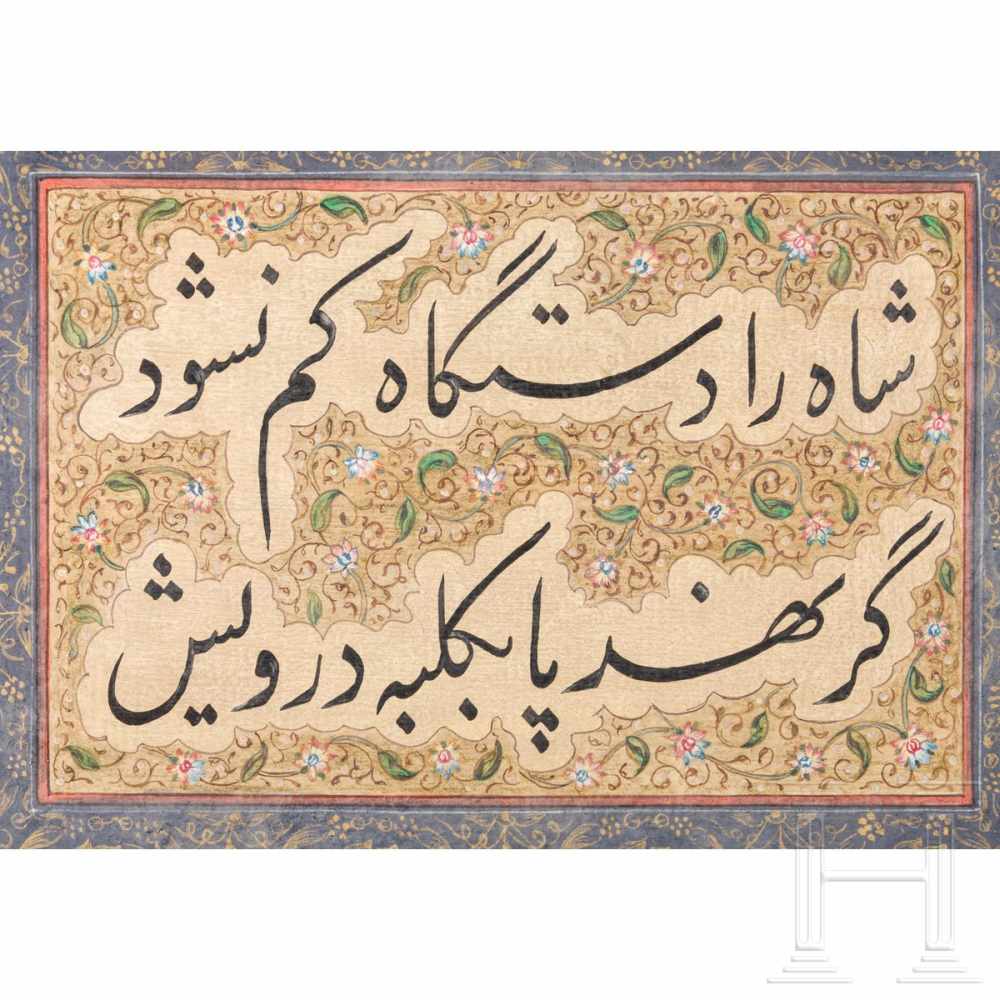 شاه را دستگاه کم نشود
گر نهد پا بکلبه درویش